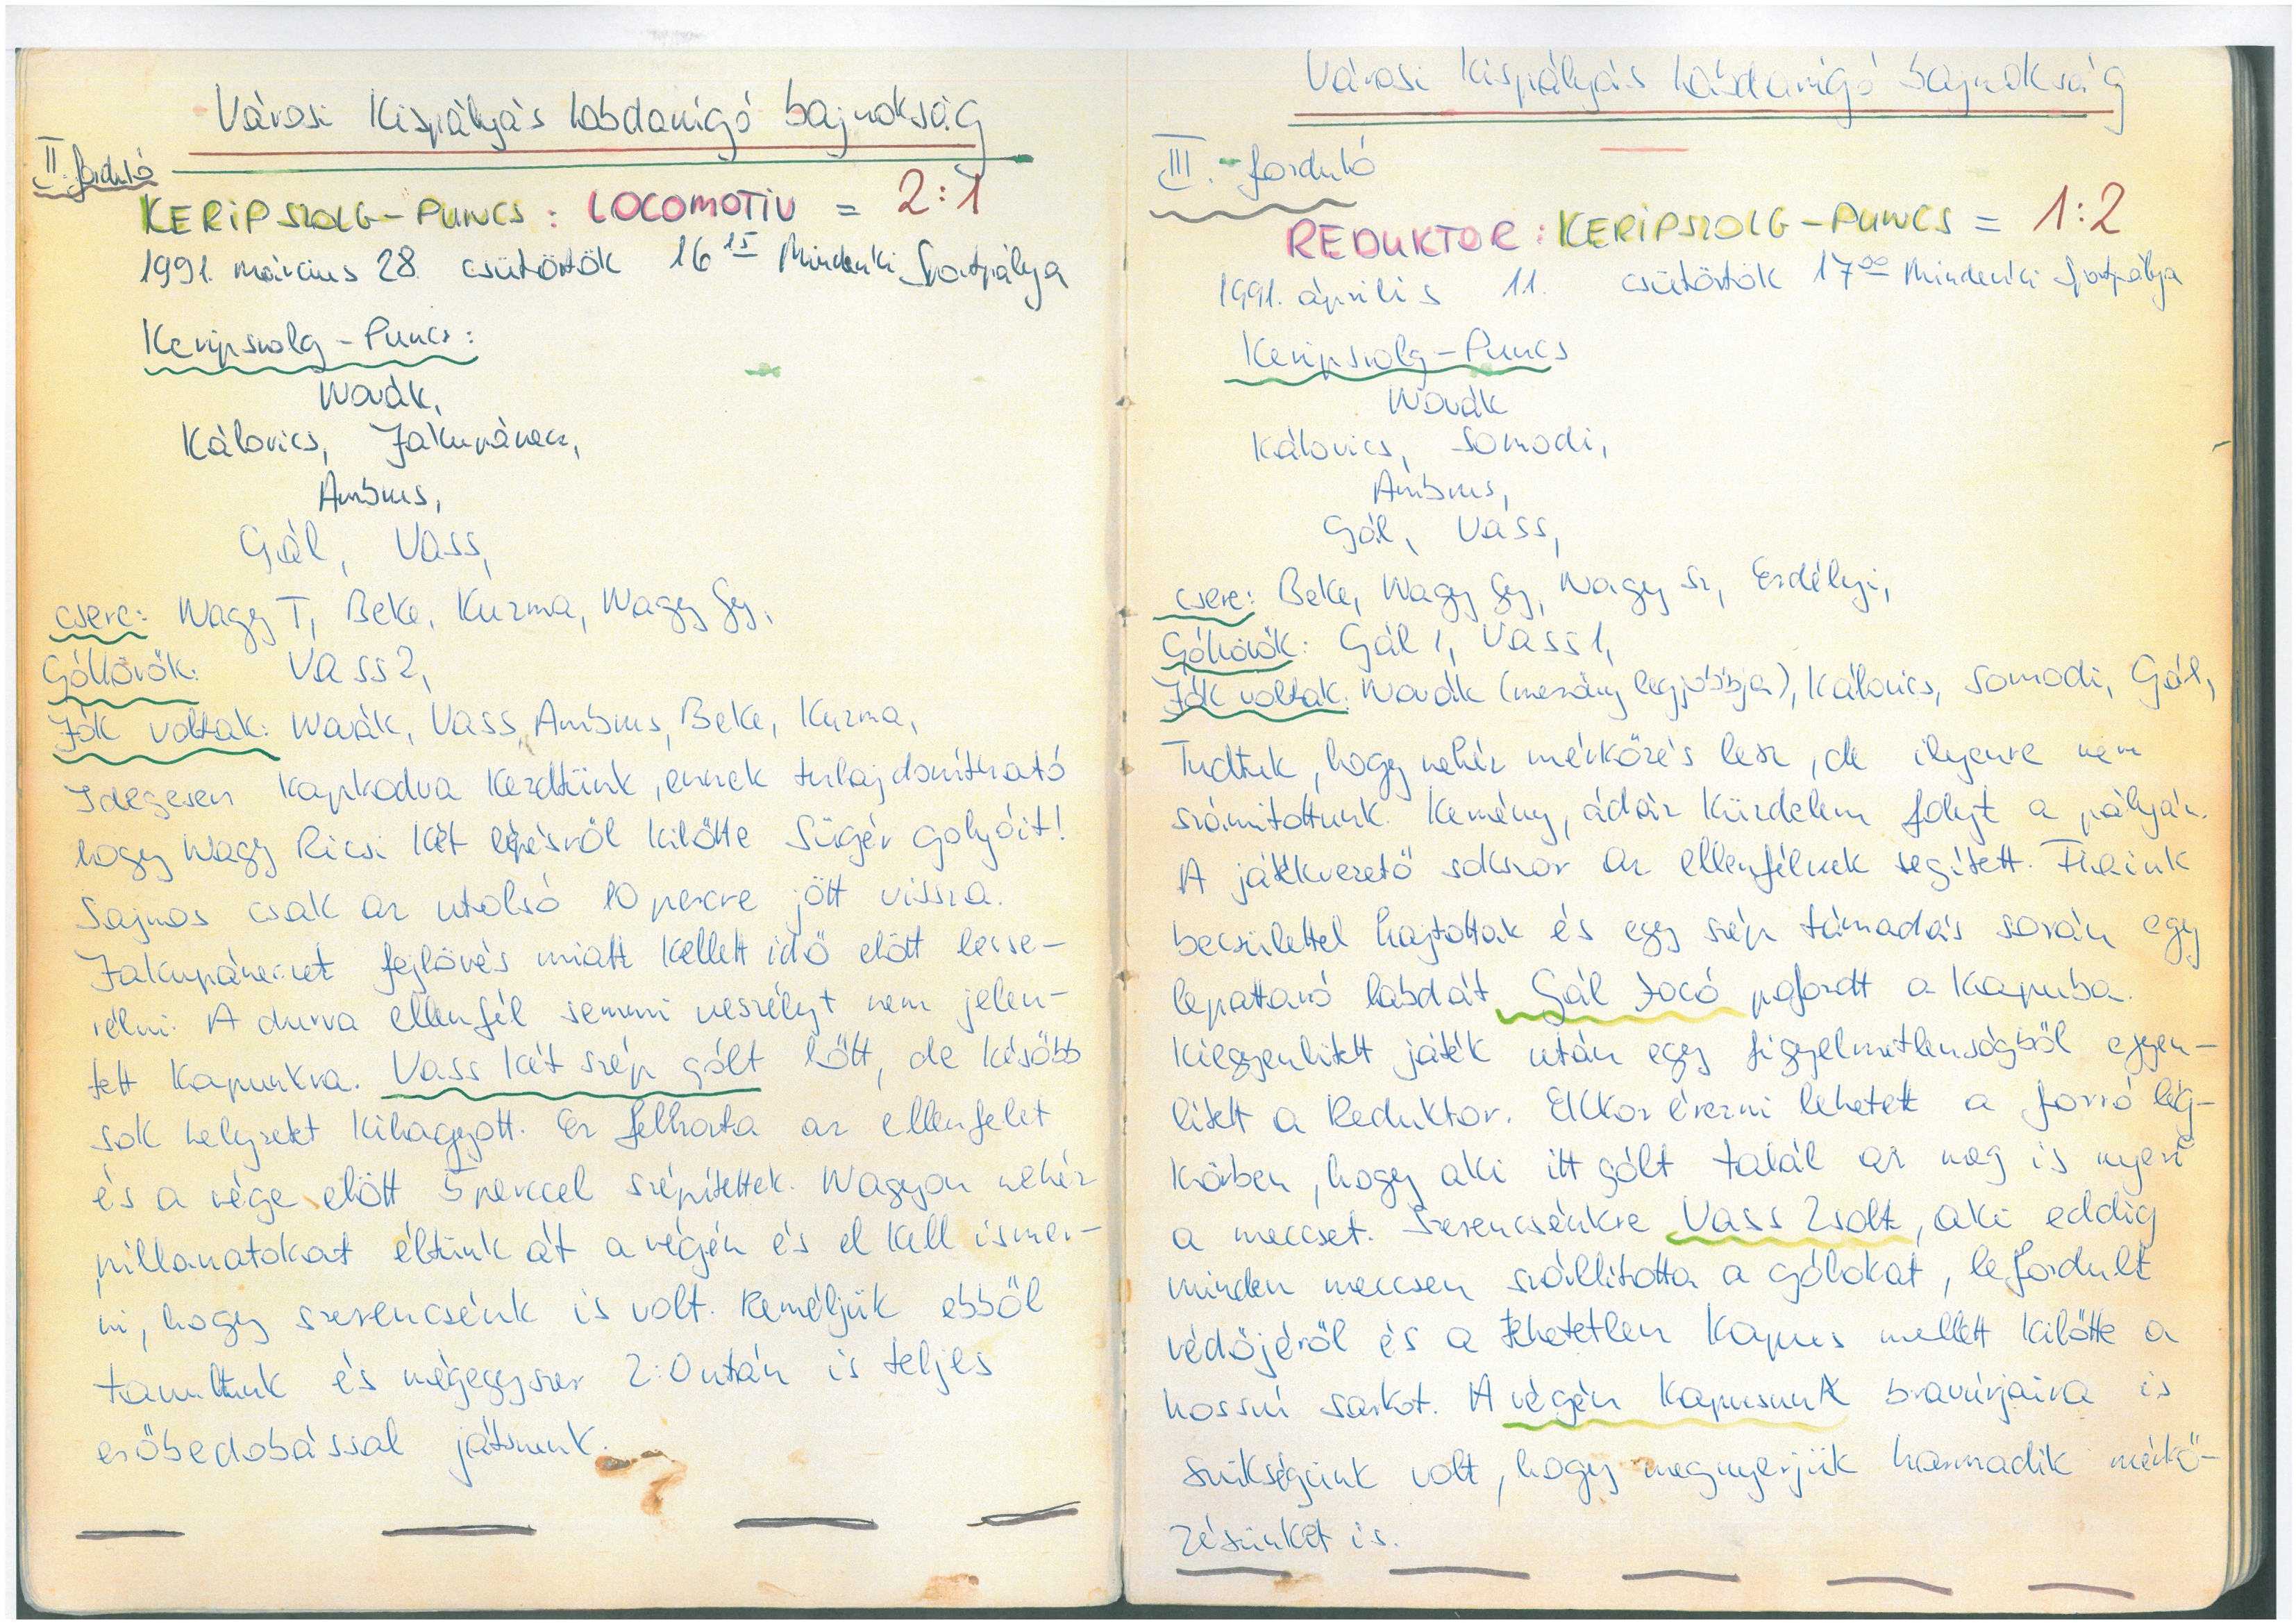 Városi Kispályás labdarúgó bajnokság
II. forduló
KERIPSZOLG-PUNCS : LOCOMOTIV = 2:1
1991. március 28. csütörtök 16 15 Mindenki Sportpálya
Keripszolg-Puncs:
Novák,
Kálovics, Jakupánecz,
Ambrus,
Gál, Vass,
csere: Nagy T, Beke, Kuzma, Nagy Gy,
Góllövők: Vass 2,
Jók voltak: Novák, Vass, Ambrus, Beke, Kuzma,
Idegesen kapkodva kezdtünk, ennek tulajdonítható
hogy Nagy Ricsi két lépésről kilőtte Sügér golyóit!
Sajnos csak az utolsó 10 percre jött vissza.
Jakupáneczet fejlövés miatt kellett idő előtt lecse-
rélni. A durva ellenfél semmi veszélyt nem jelen-
tett kapunkra. Vass két szép gólt lőtt, de később
sok helyzetet kihagyott. Ez felhozta az ellenfelet
és a vége előtt 5 perccel szépítettek. Nagyon nehéz
pillanatokat éltünk át a végén és el kell ismer-
ni, hogy szerencsénk is volt. Reméljük ebből
tanultunk és mégegyszer 2:0 után is teljes
erőbedobással játszunk.
Városi Kispályás labdarúgó bajnokság
III. forduló
REDUKTOR : KERIPSZOLG-PUNCS = 1:2
1991. április 11. csütörtök 17 00 Mindenki Sportpálya
Keripszolg-Puncs
Novák
Kálovics, Somodi,
Ambrus,
Gál, Vass,
csere: Beke, Nagy Gy, Nagy Sz, Erdélyi,
Góllövők: Gál 1, Vass 1,
Jók voltak: Novák (mezőny legjobbja), Kálovics, Somodi, Gál,
Tudtuk, hogy nehéz mérkőzés lesz, de ilyenre nem
számítottunk. Kemény, ádáz küzdelem folyt a pályán.
A játékvezető sokszor az ellenfélnek segített. Fiaink
becsülettel hajtottak és egy szép támadás során egy
lepattanó labdát Gál Jocó pofozott a kapuba.
Kiegyenlített játék után egy figyelmetlenségből egyen-
lített a Reduktor. Ekkor érezni lehetett a forró lég-
körben, hogy aki itt gólt talál az meg is nyeri
a meccset. Szerencsénkre Vass Zsolt, aki eddig
minden meccsen szállította a gólokat, lefordult
védőjéről és a tehetetlen kapus mellett kilőtte a
hosszú sarkot. A végén kapusunk bravúrjaira is
szükségünk volt, hogy megnyerjük harmadik mérkő-
zésünket is.